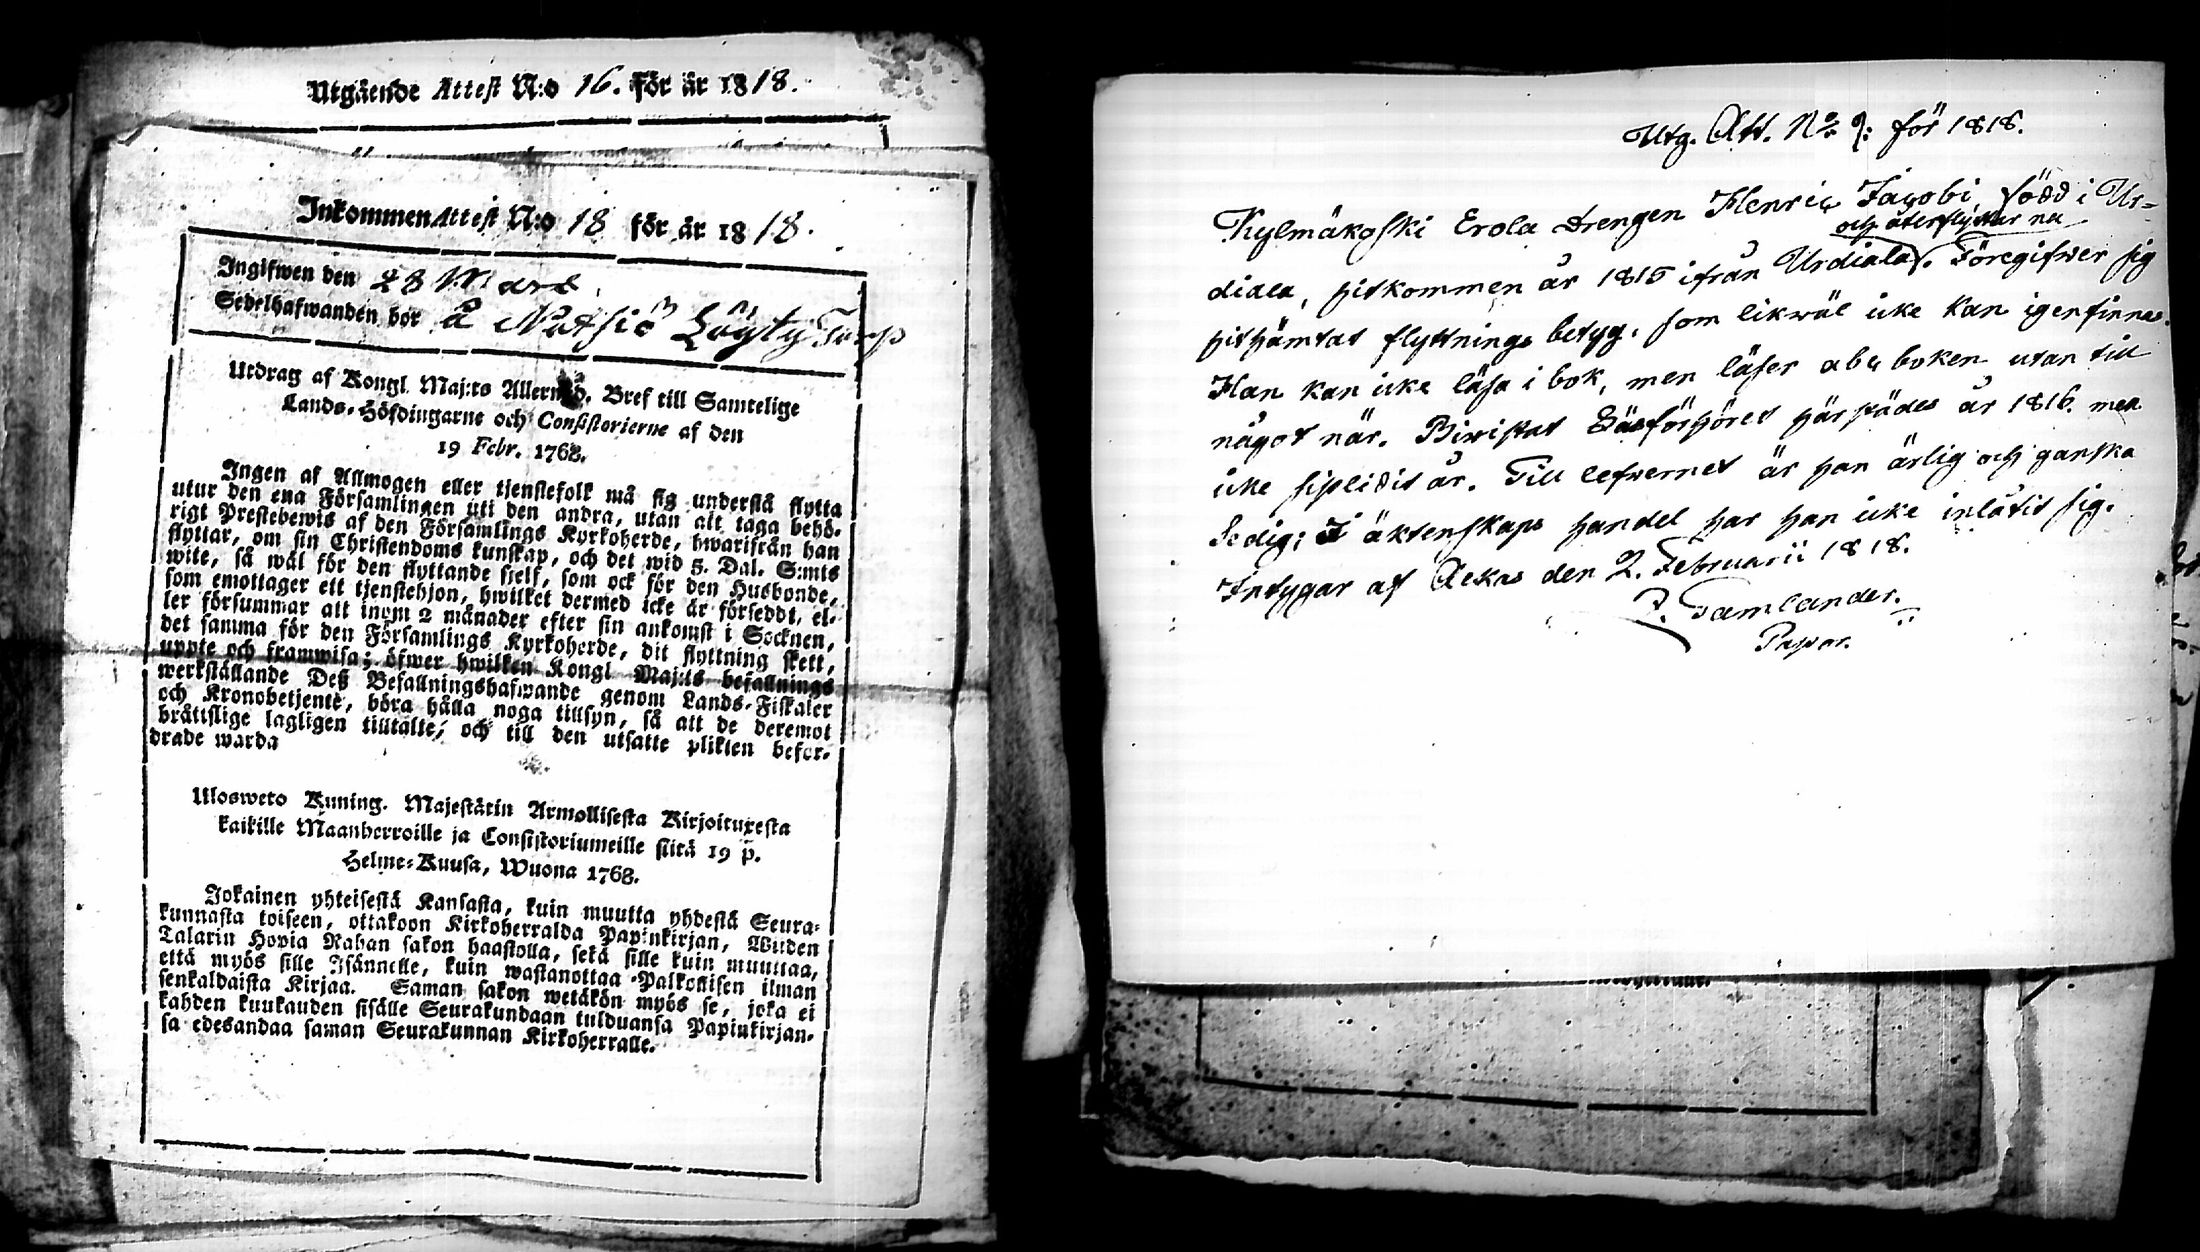 Utgående Attest N:o 16. för år 1818.
Inkommen Attest N:o 18 för år 1818.
Ingifwen den 28 Mars
Sedelhafwanden bor å Nutsiö Löyty Torp
Utdrag af Kongl. Maj:ts Allernåd. Bref till Samtelige
Lands-Höfdingarne och Consistorierne af den
19 Febr. 1768.
Ingen af Allmogen eller tjenstefolk må sig understå flytta
utur den ena Församlingen uti den andra, utan att taga behö-
rigt Prestebewis af den Församlings Kyrkoherde, hwarifrån han
flyttar, om sin Christendoms kunskap, och det wid 5. Dal. S:mts
wite, så wäl för den flyttande sjelf, som ock för den Husbonde,
som emottager ett tjenstehjon, hwilket dermed icke är försedt, el-
ler försummar att inom 2 månader efter sin ankomst i Socknen,
det samma för den Församlings Kyrkoherde, dit flyttning skett,
uppte och framwisa; öfwer hwilken Kongl Maj:ts befallnings
werkställande Deß Befallningshafwande genom Lands-Fiskaler
och Kronobetjente, böra hålla noga tillsyn, så att de deremot
bråttslige lagligen tilltalte, och till den utsatte plikten befor-
drade warda
Ulosweto Kuning. Majestätin Armollisesta Kirjoituxesta
kaikille Maanherroille ja Consistoriumeille siitä 19 p.
Helme-Kuusa, Wuona 1768.
Jokainen yhteisestä Kansasta, kuin muutta yhdestä Seura-
kunnasta toiseen, ottakoon Kirkoherralda Papinkirjan, Wiiden
Talarin Hopia Rahan sakon haastolla, sekä sille kuin muuttaa,
että myös sille Isännelle, kuin wastanottaa Palkollisen ilman
senkaldaista Kirjaa. Saman sakon wetäkön myös se, joka ei
kahden kuukauden sisälle Seurakundaan tulduansa Papinkirjan-
sa edesandaa saman Seurakunnan Kirkoherralle.
Utg. Att. No 9: för 1818.
Kylmäkoski Erola Drengen Henric Jacobi, född i Ur-
och återflyttar nu
diala, hitkommen år 1815 ifrån Urdiala. Föregifwer sig
hithämtat flyttnings betyg, som likwäl icke kan igenfinnas.
Han kan icke läsa i bok, men läser abc boken utan till
något när. Biwistat Läsförhöret härstädes år 1816. men
icke sistlidit år. Till lefwernet är han ärlig och ganska
Sedig; I äktenskaps handel har han icke inlåtit sig.
Intygar af Ackas den 2. Februarii 1818.
Tamlander.
Pastor.